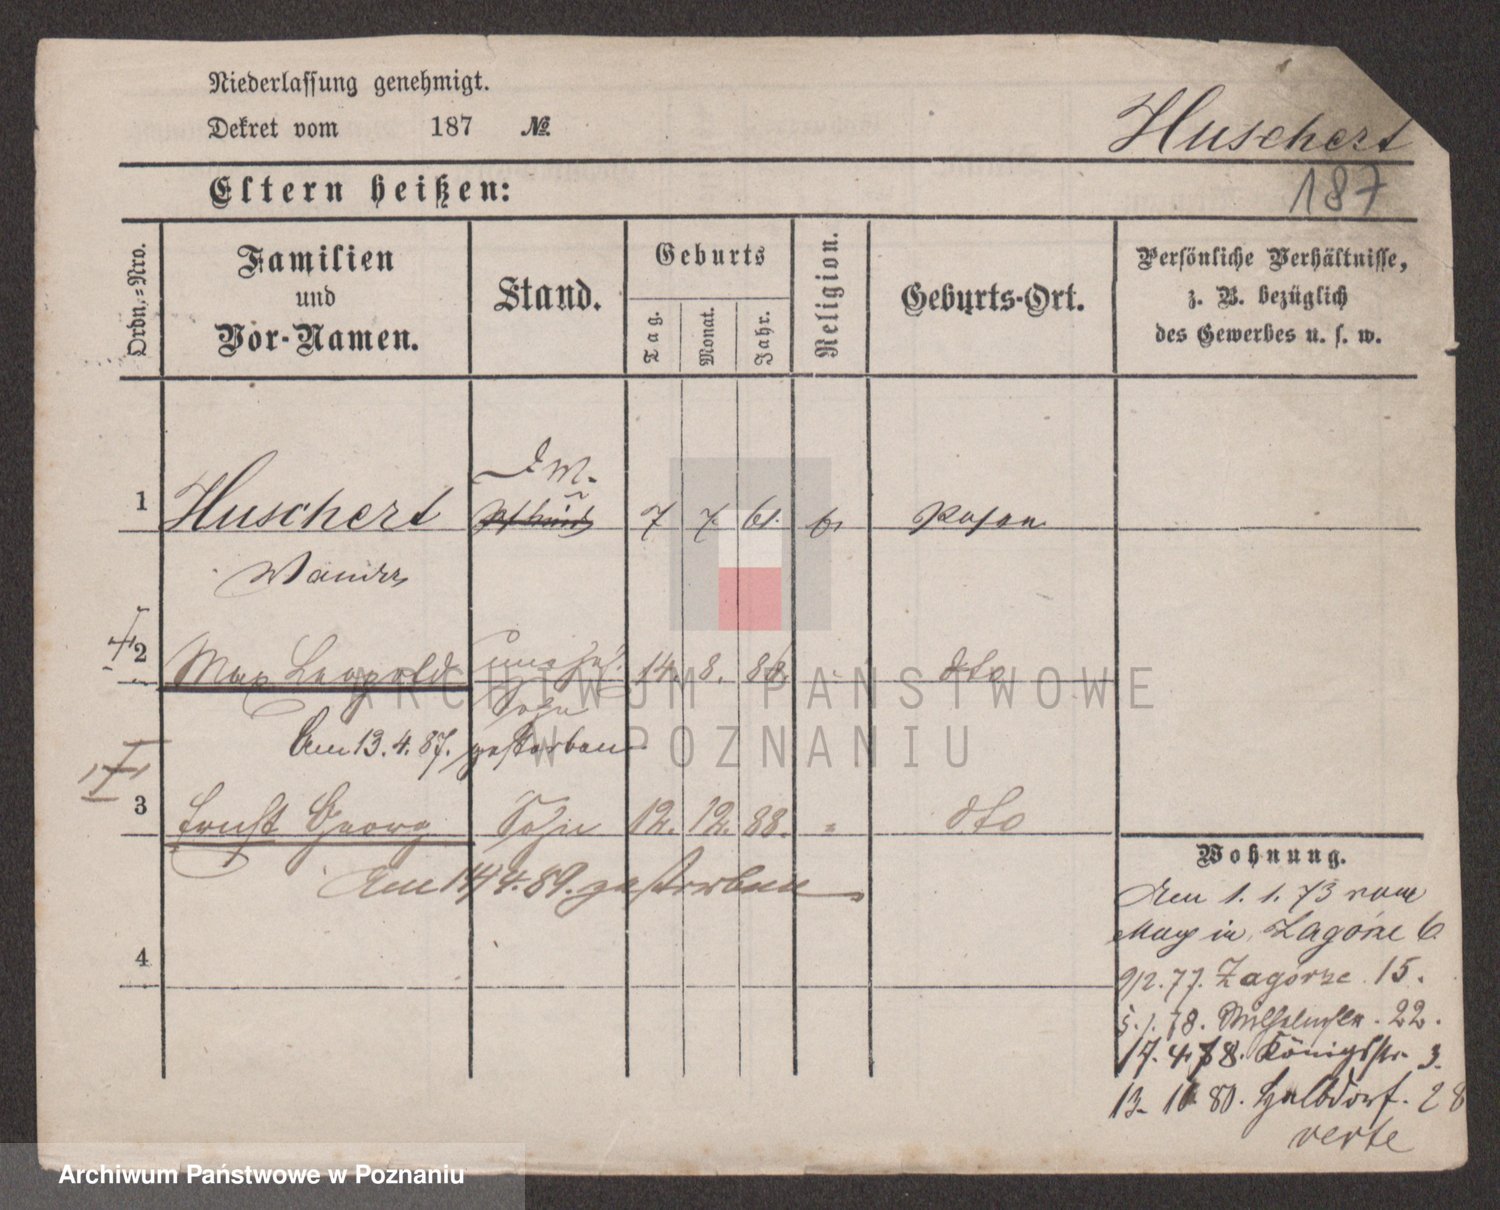 Niederlassung genehmigt.
Dekret vom 187 №
Huschert
187
Eltern heißen:
Ordn.-Nro.
Familien und Vor-Namen.
Stand.
Geburts
Tag.
Monat.
Jahr.
Religion.
Geburts-Ort.
Persönliche Verhältnisse,
z. B. bezüglich
des Gewerbes u. s. w.
1 Huschert 7 7. 61. Posen
2 Max Leopold 14. 8. 86. dto
Sohn
Am 13.4.87. gestorben
3 Ernst Georg Sohn 12. 12. 88. " dto
Am 14/4.89. gestorben
4
Wohnung.
Den 1. 1. 73 vom
in Zagórze 6
9/2.77. Zagórze 15.
5.1.78. Wilhelmstr. 22.
17.4.78. Königsstr. 3.
13. 10 80. Halbdorf. 28
verte
ARCHIWUM PAŃSTWOWE
W POZNANIU
Archiwum Państwowe w Poznaniu